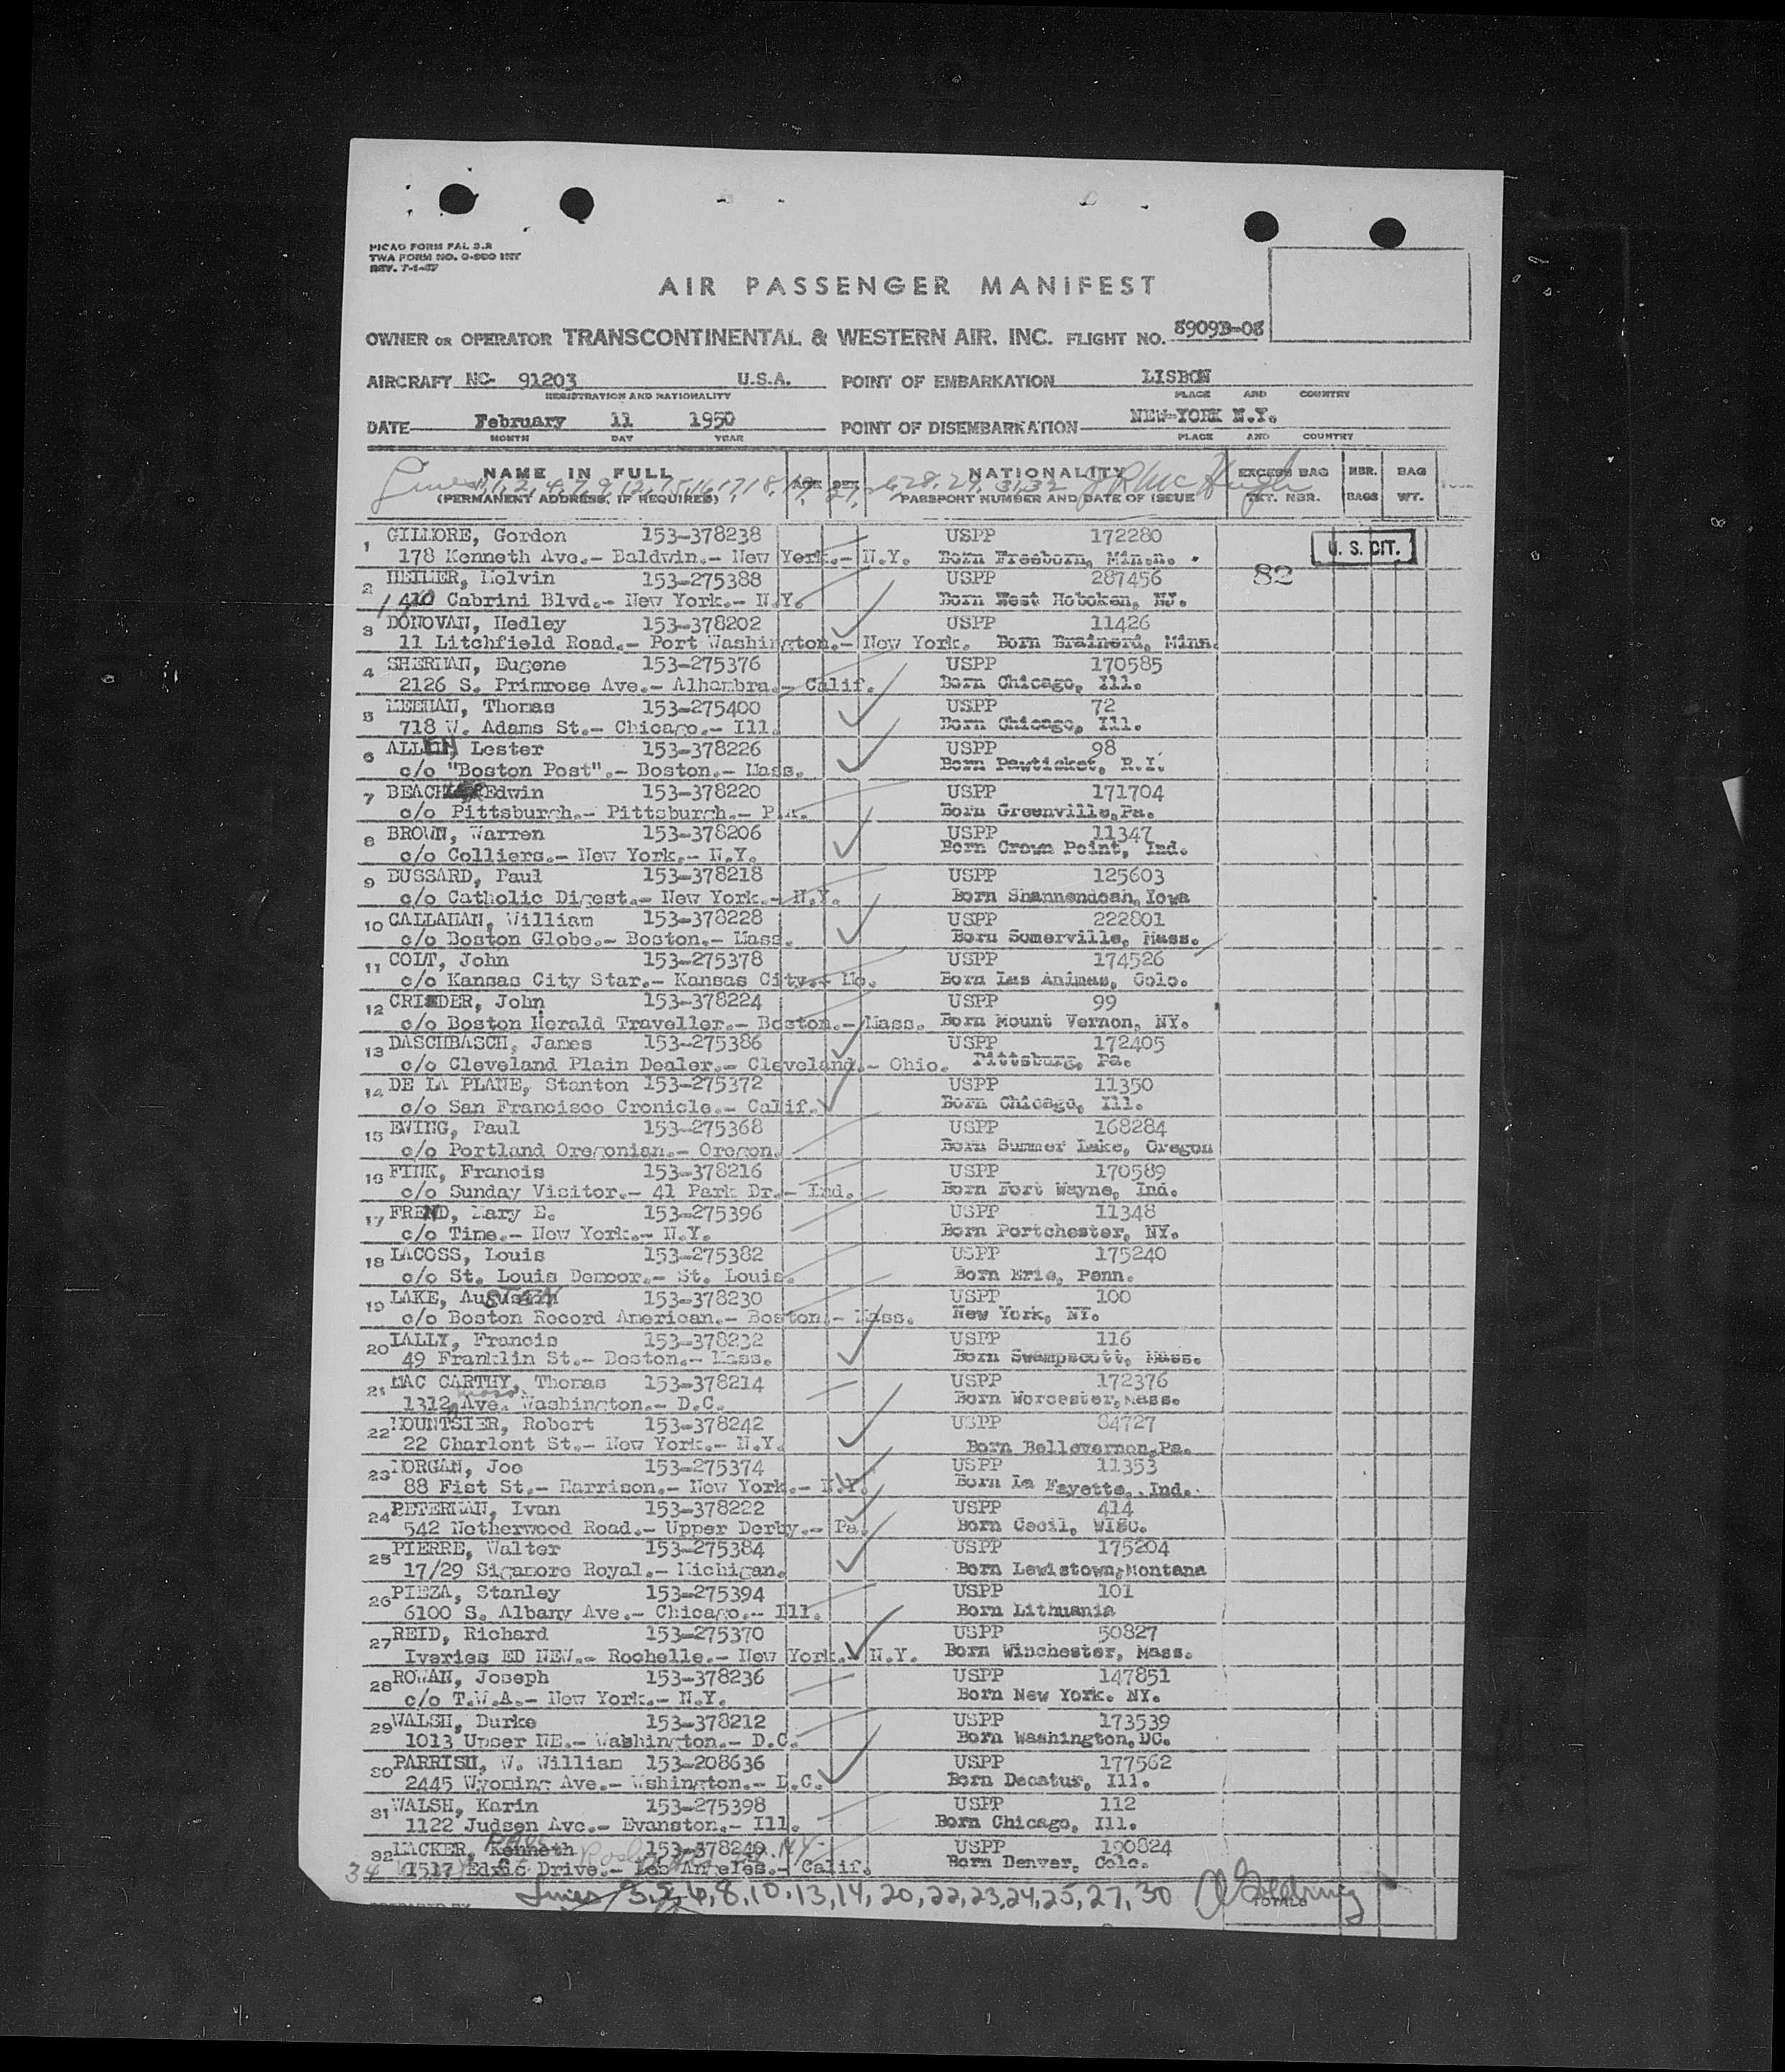 PICAO FORM FAL 3.2
TWA FORM NO. O-980 INT
REV. 7-1-47
AIR PASSENGER MANIFEST
OWNER OR OPERATOR TRANSCONTINENTAL & WESTERN AIR. INC. FLIGHT NO. 8909B-08
AIRCRAFT NC- 91203 U.S.A. POINT OF EMBARKATION LISBON
REGISTRATION AND NATIONALITY PLACE AND COUNTRY
DATE February 11 1950 POINT OF DISEMBARKATION NEW-YORK N.Y.
MONTH DAY YEAR PLACE AND COUNTRY
NAME IN FULL AGE NATIONALITY EXCESS BAG NBR. BAG
(PERMANENT ADDRESS, IF REQUIRED) PASSPORT NUMBER AND DATE OF ISSUE TKT. NBR. BAGS WT.
1 GILMORE, Gordon 153-378238 USPP 172280 U. S. CIT.
178 Kenneth Ave.- Baldwin.- New York.- N.Y. Born Freeborn, Minn.
82
2 HEIMER, Melvin 153-275388 USPP 287456
Cabrini Blvd.- New York.- N.Y. Born West Hoboken, NJ.
3 DONOVAN, Hedley 153-378202 USPP 11426
11 Litchfield Road.- Port Washington.- New York. Born Brainerd, Minn.
4 SHERMAN, Eugene 153-275376 USPP 170585
2126 S. Primrose Ave.- Alhambra.- Calif. Born Chicago, Ill.
5 MEEHAN, Thomas 153-275400 USPP 72
718 W. Adams St.- Chicago.- Ill. Born Chicago, Ill.
6 ALLEN, Lester 153-378226 USPP 98
c/o "Boston Post".- Boston.- Mass. Born Pawticket, R.I.
7 BEACHLER Edwin 153-378220 USPP 171704
c/o Pittsburgh.- Pittsburgh.- Pa. Born Greenville,Pa.
8 BROWN, Warren 153-378206 USPP 11347
c/o Colliers.- New York.- N.Y. Born Crown Point, Ind.
9 BUSSARD, Paul 153-378218 USPP 125603
c/o Catholic Digest.- New York.- N.Y. Born Shannendoah, Iowa
10 CALLAHAN, William 153-378228 USPP 222801
c/o Boston Globe.- Boston.- Mass. Born Somerville, Mass.
11 COLT, John 153-275378 USPP 174526
c/o Kansas City Star.- Kansas City.- Mo. Born Las Animas, Colo.
12 CRIDER, John 153-378224 USPP 99
c/o Boston Herald Traveller.- Boston.- Mass. Born Mount Vernon, NY.
13 DASCHBASCH, James 153-275386 USPP 172405
c/o Cleveland Plain Dealer.- Cleveland.- Ohio. Pittsburg, Pa.
14 DE LA PLANE, Stanton 153-275372 USPP 11350
c/o San Francisco Cronicle.- Calif. Born Chicago, Ill.
15 EWING, Paul 153-275368 USPP 168284
c/o Portland Oregonian.- Oregon. Born Summer Lake, Oregon
16 FINK, Francis 153-378216 USPP 170589
c/o Sunday Visitor.- 41 Park Dr.- Ind. Born Fort Wayne, Ind.
17 FREND, Mary E. 153-275396 USPP 11348
c/o Time.- New York.- N.Y. Born Portchester, NY.
18 LACOSS, Louis 153-275382 USPP 175240
c/o St. Louis Democr.- St. Louis. Born Erie, Penn.
19 LAKE, Austen 153-378230 USPP 100
c/o Boston Record American.- Boston.- Mass. New York, NY.
20 LALLY, Francis 153-378232 USPP 116
49 Franklin St.- Boston.- Mass. Born Swampscott, Mass.
21 MAC CARTHY, Thomas 153-378214 USPP 172376
1312 Mass Ave. Washington.- D.C. Born Worcester,Mass.
22 MOUNTSIER, Robert 153-378242 USPP 84727
22 Charlont St.- New York.- N.Y. Born Bellevernon,Pa.
23 MORGAN, Joe 153-275374 USPP 11353
88 Fist St.- Harrison.- New York.- N.Y. Born La Fayette, Ind.
24 PETERMAN, Ivan 153-378222 USPP 414
542 Netherwood Road.- Upper Derby.- Pa. Born Cecil, WISC.
25 PIERRE, Walter 153-275384 USPP 175204
17/29 Sigamore Royal.- Michigan. Born Lewistown,Montana
26 PIEZA, Stanley 153-275394 USPP 101
6100 S. Albany Ave.- Chicago.- Ill. Born Lithuania
27 REID, Richard 153-275370 USPP 50827
Iveries ED NEW.- Rochelle.- New York. N.Y. Born Winchester, Mass.
28 ROWAN, Joseph 153-378236 USPP 147851
c/o T.W.A.- New York.- N.Y. Born New York. NY.
29 WALSH, Burke 153-378212 USPP 173539
1013 Upser NE.- Washington.- D.C. Born Washington,DC.
30 PARRISH, W. William 153-208636 USPP 177562
2445 Wyoming Ave.- Wshington.- D.C. Born Decatur, Ill.
31 WALSH, Karin 153-275398 USPP 112
1122 Judsen Ave.- Evanston.- Ill. Born Chicago, Ill.
32 MACKER, Kenneth 153-378240 USPP 190824
1517 Drive.- Los Angeles.- Calif. Born Denver, Colo.
34
Lines 3, 5, 6, 8, 10, 13, 14, 20, 22, 23, 24, 25, 27, 30
TOTALS